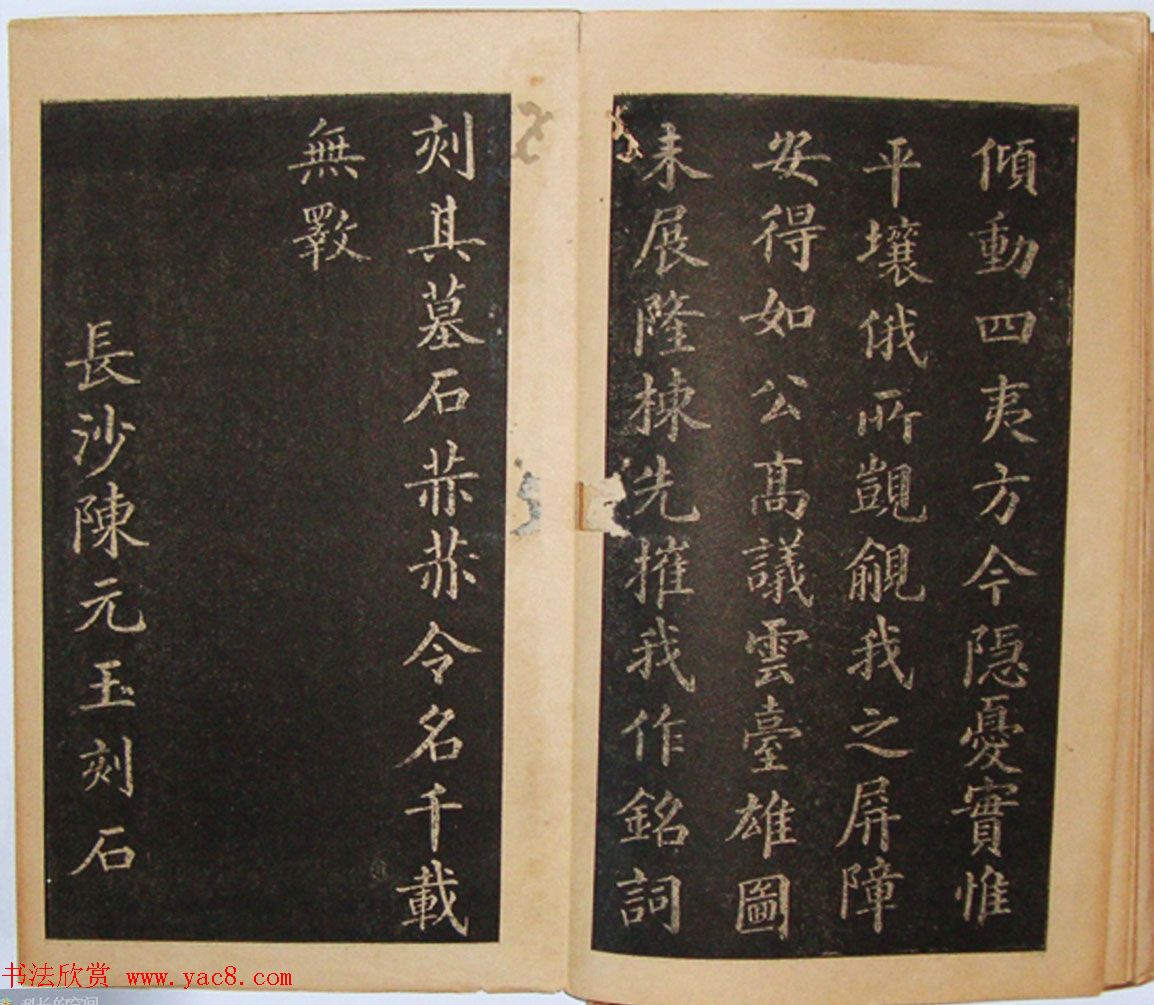 傾動四夷方今隱憂實惟
平壤俄所覬覦我之屏障
安得如公高議雲臺雄圖
未展隆棟先摧我作銘詞
刻其墓石恭恭令名千載
無斁
長沙陳元玉刻石
书法欣赏 www.yac8.com